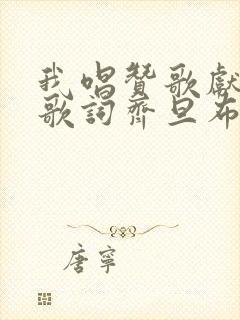 我唱贊歌獻
歌詞齊旦布
唐寧